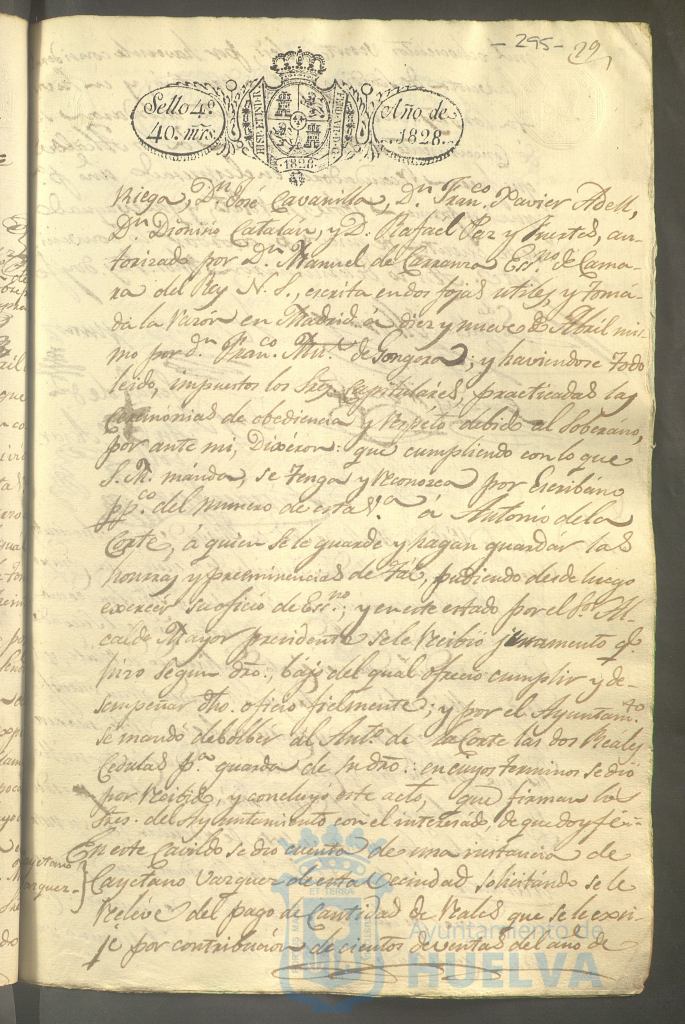 - 295 - 29
Sello 4º.
40. mrs.
HISP. ET IND. R.
1828.
Año de
1828.
Riega, Dn. José Cavanilla, Dn. Franco. Xavier Adell,
Dn. Dionisio Catalán, y D. Rafael Paz y Fuertes, au-
torizado por Dn. Manuel de Carranza Essno. de Cama-
ra del Rey N. S., escrita en dos fojas utiles, y toma-
da la razón en Madrid á diez y nueve de Abril mis-
mo por dn. Franco. de Gongora; y haviendose todo
leido, impuestos los Sres. Capitulares, practicadas las
ceremonias de obediencia y respeto debido al Soberano,
por ante mi, Dixéron: que cumpliendo con lo que
S. M. mánda, se tenga y reconozca por Escribano
ppco. del número de esta Va. á Antonio de la
Corte, á quien se le guarde y hagan guardár las
honrras y preeminencias de tal, pudiendo desde luego
exercér su oficio de Essno.; y en este estado por el Sr. Al-
calde Mayor presidente se le recibió juramento qe.
hizo segun dro., bajo del qual ofreció cumplir y de-
sempeñar dho. oficio fielmente; y por el Ayuntamto.
se mandó debolbér al Anto. de la Corte las dos Reales
Cedulas pa. guarda de su dro.: en cuyos terminos se dió
por recibido, y concluyó este acto, que firman los
Sres. del Ayuntamiento con el interesado, de que doy fé =
En este Cavildo se dio cuenta de una instancia de
Cayetano
Vazquez
Cayetano Vazquez de esta Vecindad solicitándo se le
reléve del pago de Cantidad de Reales que se le exi-
je por contribución de cientos de ventas del año de
Ayuntamiento de
HUELVA